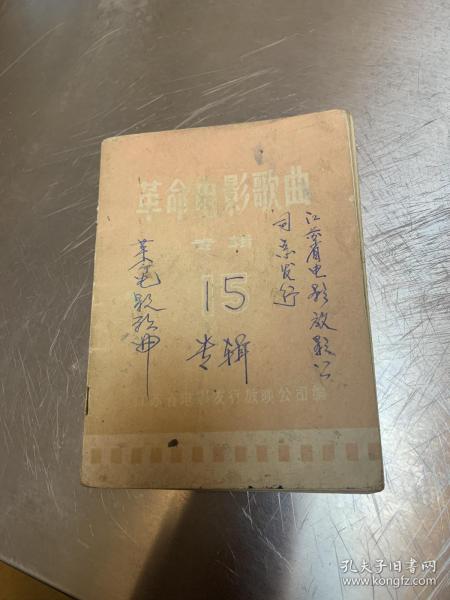 革命电影歌曲
专辑
15
江苏省电影发行放映公司编
江苏省电影放影公
司系发行
革命电影歌曲
15
专辑
孔夫子旧书网
www.kongfz.com